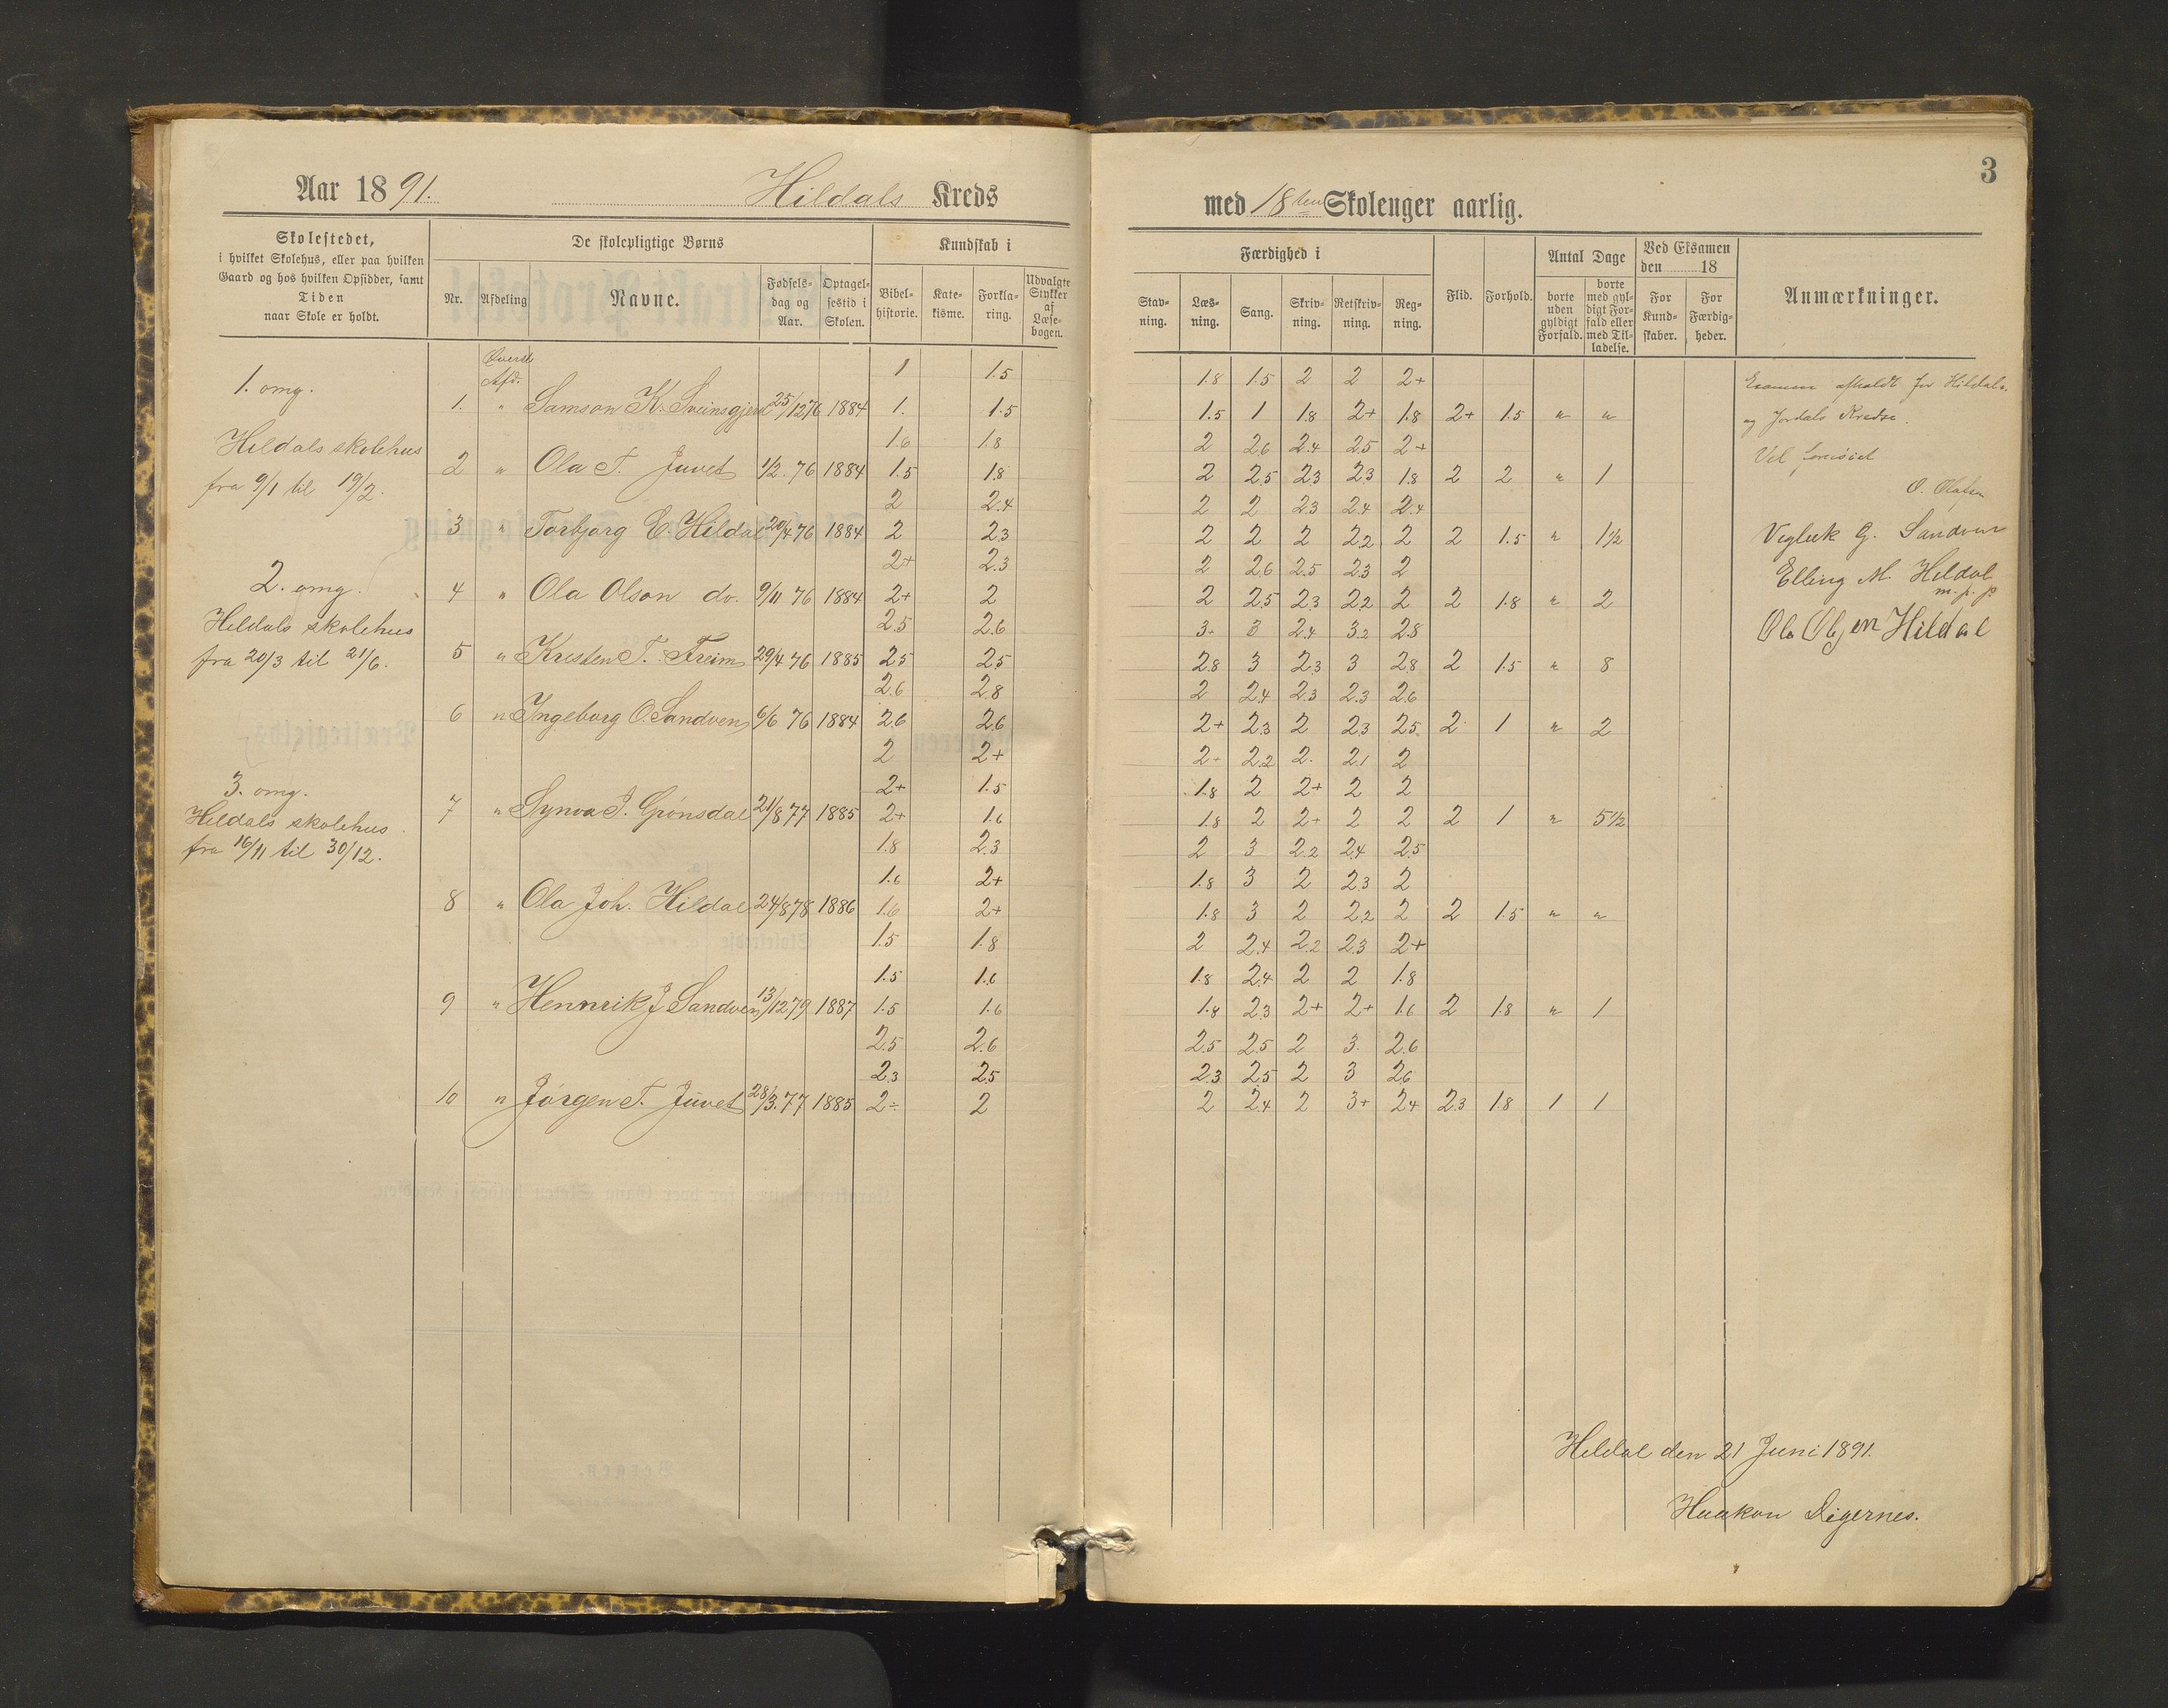 Aar 1891. Hildals Kreds
Skolestedet,
i hvilket Skolehus, eller paa hvilken
Gaard og hos hvilken Opsidder, samt
Tiden
naar Skole er holdt.
De skolepligtige Børns
Nr. Afdeling Navne. Fødselsdag og Aar. Optagelsestid i Skolen.
Kundskab i
Bibelhistorie. Katekisme. Forklaring. Udvalgte Stykker af Læsebogen.
1. omg.
Hildals skolehus
fra 9/1 til 19/2.
2. omg.
Hildals skolehus
fra 20/3 til 21/6.
3. omg.
Hildals skolehus
fra 16/11 til 30/12.
Øverste Afd. 1 1.5
1. " Samson K. Sveinsgjerd 25/12 76 1884 1. 1.5
1.6 1.8
2 " Ola T. Juvet 1/2 76 1884 1.5 1.8
2 2.4
3 " Torbjorg E. Hildal 20/4 76 1884 2 2.3
2+ 2.3
4 " Ola Olson do. 9/11 76 1884 2+ 2
2.5 2.6
5 " Kristen T. Freim 29/4 76 1885 2.5 2.5
2.6 2.8
6 " Ingeborg O. Sandven 6/6 76 1884 2.6 2.6
2 2+
2+ 1.5
7 " Synva J. Grønsdal 21/8 77 1885 2+ 1.6
1.8 2.3
1.6 2+
8 " Ola Joh. Hildal 24/8 78 1886 1.6 2+
1.5 1.8
1.5 1.6
9 " Hennrik J Sandven 13/12 79 1887 1.5 1.6
2.5 2.6
2.3 2.5
10 " Jørgen T. Juvet 28/3. 77 1885 2÷ 2
3
med 18 ten Skoleuger aarlig.
Færdighed i
Stavning. Læsning. Sang. Skrivning. Retskrivning. Regning.
Flid. Forhold.
Antal Dage
borte uden gyldigt Forfald. borte med gyldigt Forfald eller med Tilladelse.
Ved Eksamen den 18
For Kundskaber. For Færdigheder.
Anmærkninger.
1.8 1.5 2 2 2+
1.5 1 1.8 2+ 1.8 2+ 1.5 " "
2 2.6 2.4 2.5 2+
2 2.5 2.3 2.3 1.8 2 2 " 1
2 2 2.3 2.4 2.4
2 2 2 2.2 2 2 1.5 " 1 1/2
2 2.6 2.5 2.3 2
2 2.5 2.3 2.2 2 2 1.8 " 2
3÷ 3 2.4 3.2 2.8
2.8 3 2.3 3 2.8 2 1.5 " 8
2 2.4 2.3 2.3 2.6
2+ 2.3 2 2.3 2.5 2 1 " 2
2÷ 2.2 2. 2.1 2
1.8 2 2+ 2 2
1.8 2 2+ 2 2 2 1 " 5 1/2
2 3 2.2 2.4 2.5
1.8 3 2 2.3 2
1.8 3 2 2.2 2 2 1.5 " "
2 2.4 2.2 2.3 2+
1.8 2.4 2 2 1.8
1.8 2.3 2+ 2+ 1.6 2 1.8 " 1
2.5 2.5 2 3. 2.6
2.3 2.5 2 3 2.6
2 2.4 2 3+ 2.4 2.3 1.8 1 1
Examen afholdt for Hildals
og Jordals Kredse.
Vel
O. Olafsen
Vigleik G. Sandven
Elling M. Hildal
m. p. p.
Ola Olsen Hildal
Hildal den 21 Juni 1891.
Haakon Digernes.